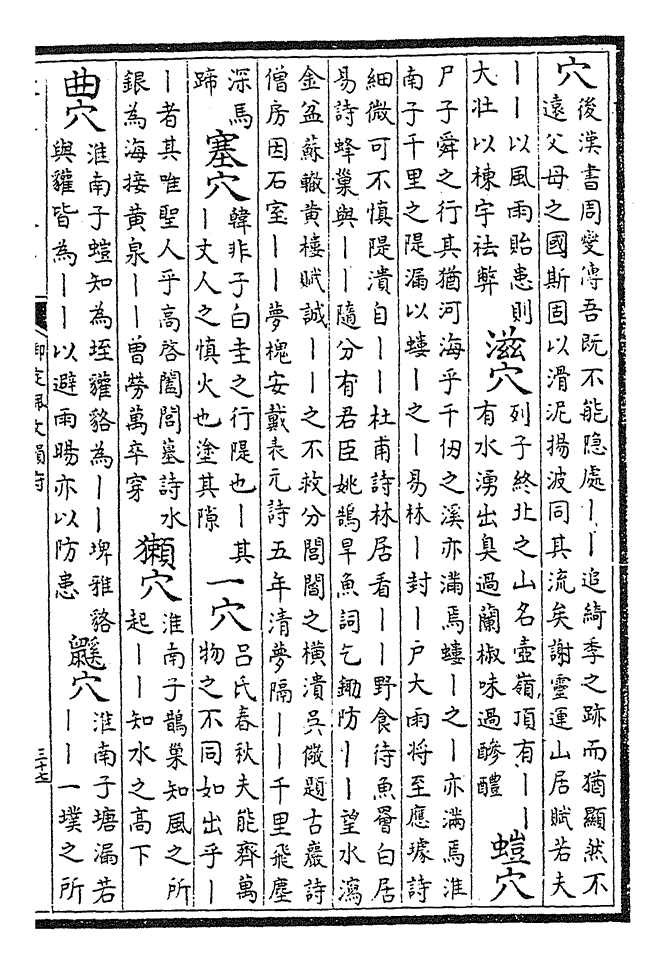 穴
後漢書周燮傳吾既不能隐處丨丨追綺季之跡而猶顯然不
遠父母之國斯固以滑泥揚波同其流矣謝靈運山居賦若夫
丨丨以風雨貽患則
大壯以棟宇祛弊
滋穴
列子終北之山名壺嶺頂有丨丨
有水湧出臭過蘭椒味過醪醴
螘穴
尸子舜之行其猶河海乎千仞之溪亦滿焉螻丨之丨亦滿焉淮
南子千里之隄漏以螻丨之丨易林丨封丨户大雨将至應璩詩
細微可不慎隄潰自丨丨杜甫詩林居看丨丨野食待魚罾白居
易詩蜂巢與丨丨隨分有君臣姚鵠旱魚詞乞鋤防丨丨望水瀉
金盆蘇轍黄樓賦誠丨丨之不救分閭閻之横潰吳儆題古巖詩
僧房因石室丨丨夢槐安戴表元詩五年清夢隔丨丨千里飛塵
深馬
蹄
塞穴
韓非子白圭之行隄也丨其
丨丈人之慎火也塗其隙
一穴
呂氏春秋夫能齊萬
物之不同如出乎丨
丨者其唯聖人乎高啓闔閭墓詩水
銀為海接黄泉丨丨曽勞萬卒穿
獺穴
淮南子鵲巢知風之所
起丨丨知水之高下
曲穴
淮南子螘知為垤貛貉為丨丨埤雅貉
與貛皆為丨丨以避雨暘亦以防患
鼷穴
淮南子塘漏若
丨丨一璞之所
御定佩文韻府
三十七